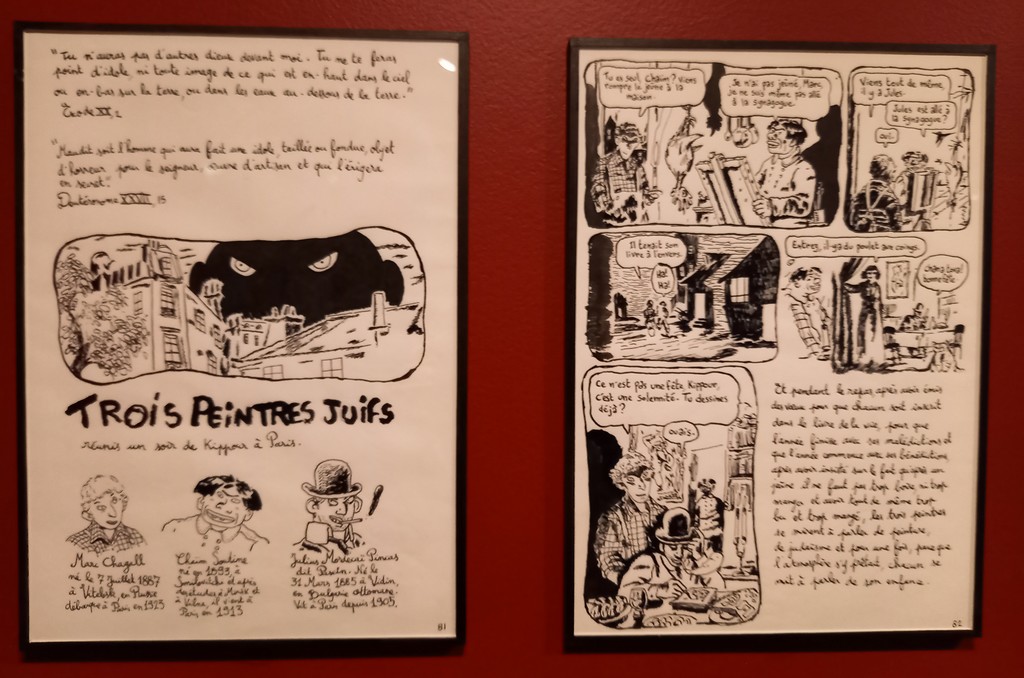 "Tu n'auras pas d'autres dieux devant moi. Tu ne te feras
point d'idole, ni toute image de ce qui est en-haut dans le ciel
ou en-bas sur la terre, ou dans les eaux au-dessous de la terre."
Exode XX, 2
"Maudit soit l'homme qui aura fait une idole taillée ou fondue, objet
d'horreur pour le seigneur, œuvre d'artisan et qui l'érigera
en secret."
Deutéronome XXVII, 15
TROIS PEINTRES JUIFS
réunis un soir de Kippour à Paris.
Marc Chagall
né le 7 Juillet 1887
à Vitebsk, en Russie
débarque à Paris en 1923
Chaïm Soutine
né en 1893, à
Smilovitchi et après
des études à Minsk et
à Vilna, il vit à
Paris en 1913
Julius Mordecaï Pincas
dit Pascin. Né le
31 Mars 1885 à Vidin,
en Bulgarie ottomane.
Vit à Paris depuis 1905.
81
Tu es seul, Chaïm? Viens
rompre le jeûne à la
maison.
Je n'ai pas jeûné, Marc,
je ne suis même pas allé
à la synagogue.
Viens tout de même,
il y a Jules.
Jules est allé à
la synagogue?
oui.
Il tenait son
livre à l'envers.
Ha!
Ha!
Entrez, il-y-a du poulet aux coings.
chana tova!
Ce n'est pas une fête, Kippour,
c'est une solemnité. Tu dessines
déjà?
ouais.
Et pendant le repas, après avoir émis
des vœux pour que chacun soit inscrit
dans le livre de la vie, pour que
l'année finisse avec ses malédictions et
que l'année commence avec ses bénédictions,
après avoir insisté sur le fait qu'après un
jeûne il ne faut pas trop boire ni trop
manger et avoir tout de même trop
bu et trop mangé, les trois peintres
se mirent à parler de peinture,
de judaïsme et pour une fois, parce que
l'atmosphère s'y prêtait, chacun se
mit à parler de son enfance.
82